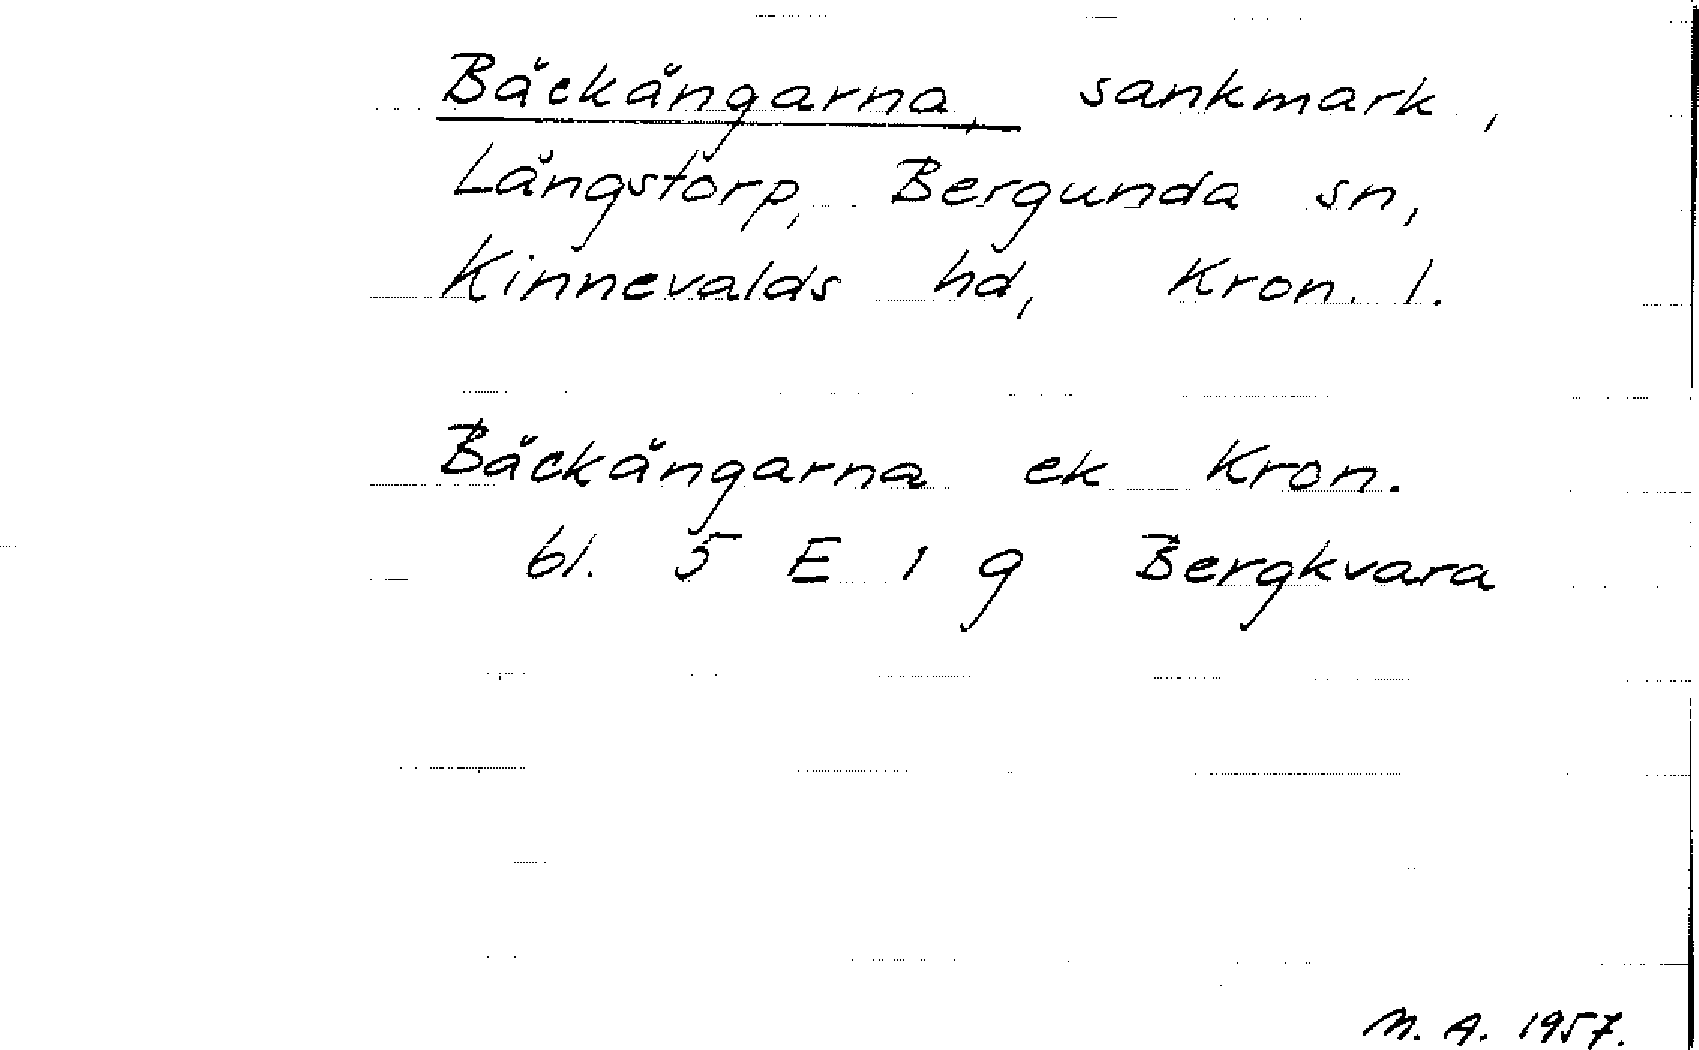 Bäckängarna, sankmark,
Längstorp, Bergunda sn,
Kinnevalds hd, Kron. l.
Bäckängarna ek Kron.
bl. 5 E 1 g Bergkvara
M. A. 1957.